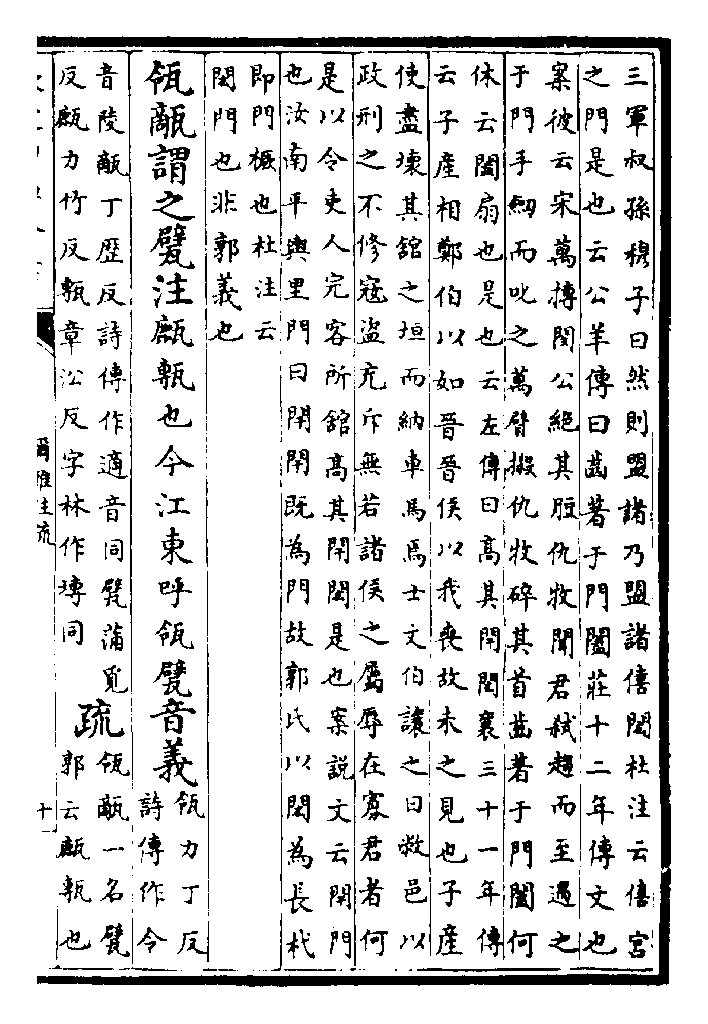 三軍叔孫穆子曰然則盟諸乃盟諸僖閎杜注云僖宮
之門是也云公羊傳曰齒著于門闔莊十二年傳文也
案彼云宋萬搏閔公絕其脰仇牧聞君弑趨而至遇之
于門手劒而叱之萬臂摋仇牧碎其首齒著于門闔何
休云闔扇也是也云左傳曰高其閈閎襄三十一年傳
云子產相鄭伯以如晉晉侯以我喪故未之見也子產
使盡壊其舘之垣而納車馬焉士文伯讓之曰敝邑以
政刑之不修寇盜充斥無若諸侯之屬辱在寡君者何
是以令吏人完客所舘高其閈閎是也案說文云閈門
也汝南平輿里門曰閈閈既為門故郭氏以閎為長杙
即門橛也杜注云
閎門也非郭義也
瓴甋謂之甓注㼾甎也今江東呼瓴甓音義
瓴力丁反
詩傳作令
音陵甋丁歷反詩傳作適音同甓蒲覓
反㼾力竹反甎章㳂反字林作塼同
疏
瓴甋一名甓
郭云㼾甎也
爾雅注疏